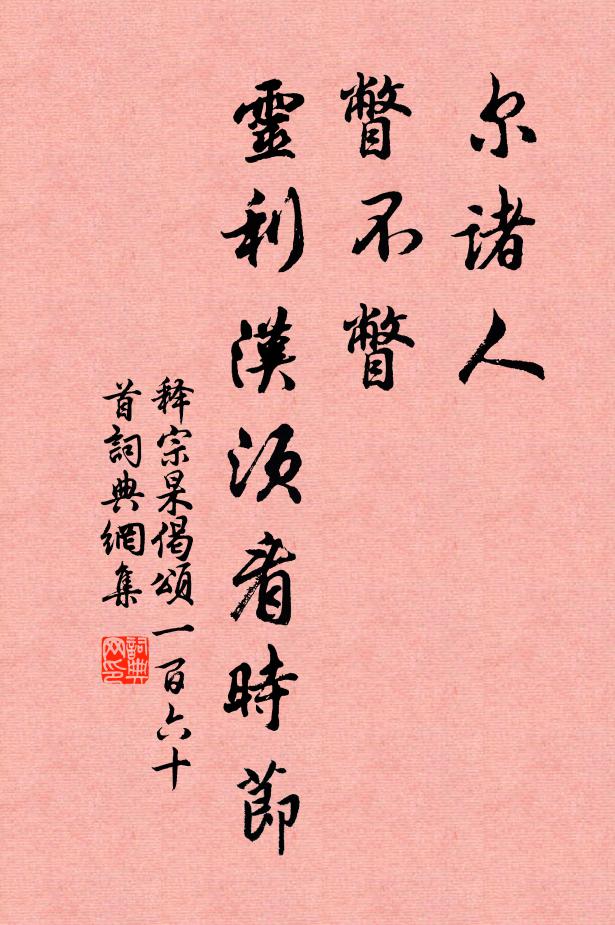 尔諸人
瞥不瞥
靈利漢須看時節
释宗杲偈頌一百六十
首詞典網集
詞典网印